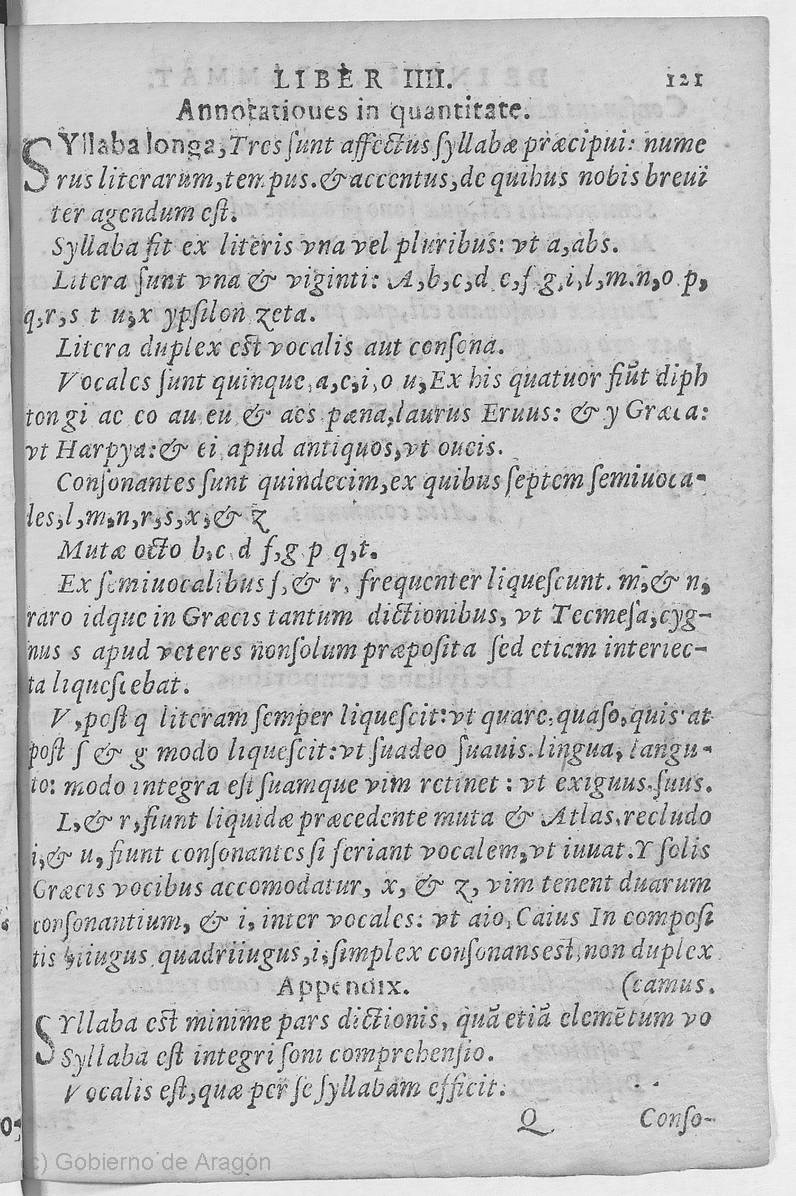 LIBER IIII. 121
Annotationes in quantitate.
SYllaba longa, Tres sunt affectus syllabæ præcipui: nume
rus literarum, tempus. & accentus, de quibus nobis breui
ter agendum est.
Syllaba fit ex literis vna vel pluribus: vt a, abs.
Litera sunt vna & viginti: A, b, c, d e, f g, i, l, m. n, o p,
q, r, s t u, x ypsilon zeta.
Litera duplex est vocalis aut consona.
Vocales sunt quinque, a, e, i, o u, Ex his quatuor fiūt diph
tongi ae eo au eu & aes pæna, laurus Eruus: & y Græca:
vt Harpya: & ei apud antiquos, vt oueis.
Consonantes sunt quindecim, ex quibus septem semiuoca-
les, l, m, n, r, s, x, & z
Mutæ octo b, c d f, g p q, t.
Ex semiuocalibus s, & r, frequenter liquescunt. m, & n,
raro idque in Græcis tantum dictionibus, vt Tecmesa, cyg-
nus s apud veteres nonsolum præposita sed etiam interiec-
ta liquescebat.
V, post q literam semper liquescit: vt quare, quaso, quis at
post s & g modo liquescit: vt suadeo suauis. lingua, langu-
to: modo integra est suamque vim retinet: vt exiguus. suus.
L, & r, fiunt liquidæ præcedente muta & Atlas. recludo
i, & u, fiunt consonantes si feriant vocalem, vt iuuat. Y solis
Græcis vocibus accomodatur, x, & z, vim tenent duarum
consonantium, & i, inter vocales: vt aio, Caius In composi
tis biiugus quadriiugus, i, simplex consonans est, non duplex
Appendix. (camus.
SYllaba est minime pars dictionis, quā etiā elemētum vo
Syllaba est integri soni comprehensio.
Vocalis est, quæ per se syllabam efficit.
Q Conso-
(c) Gobierno de Aragón